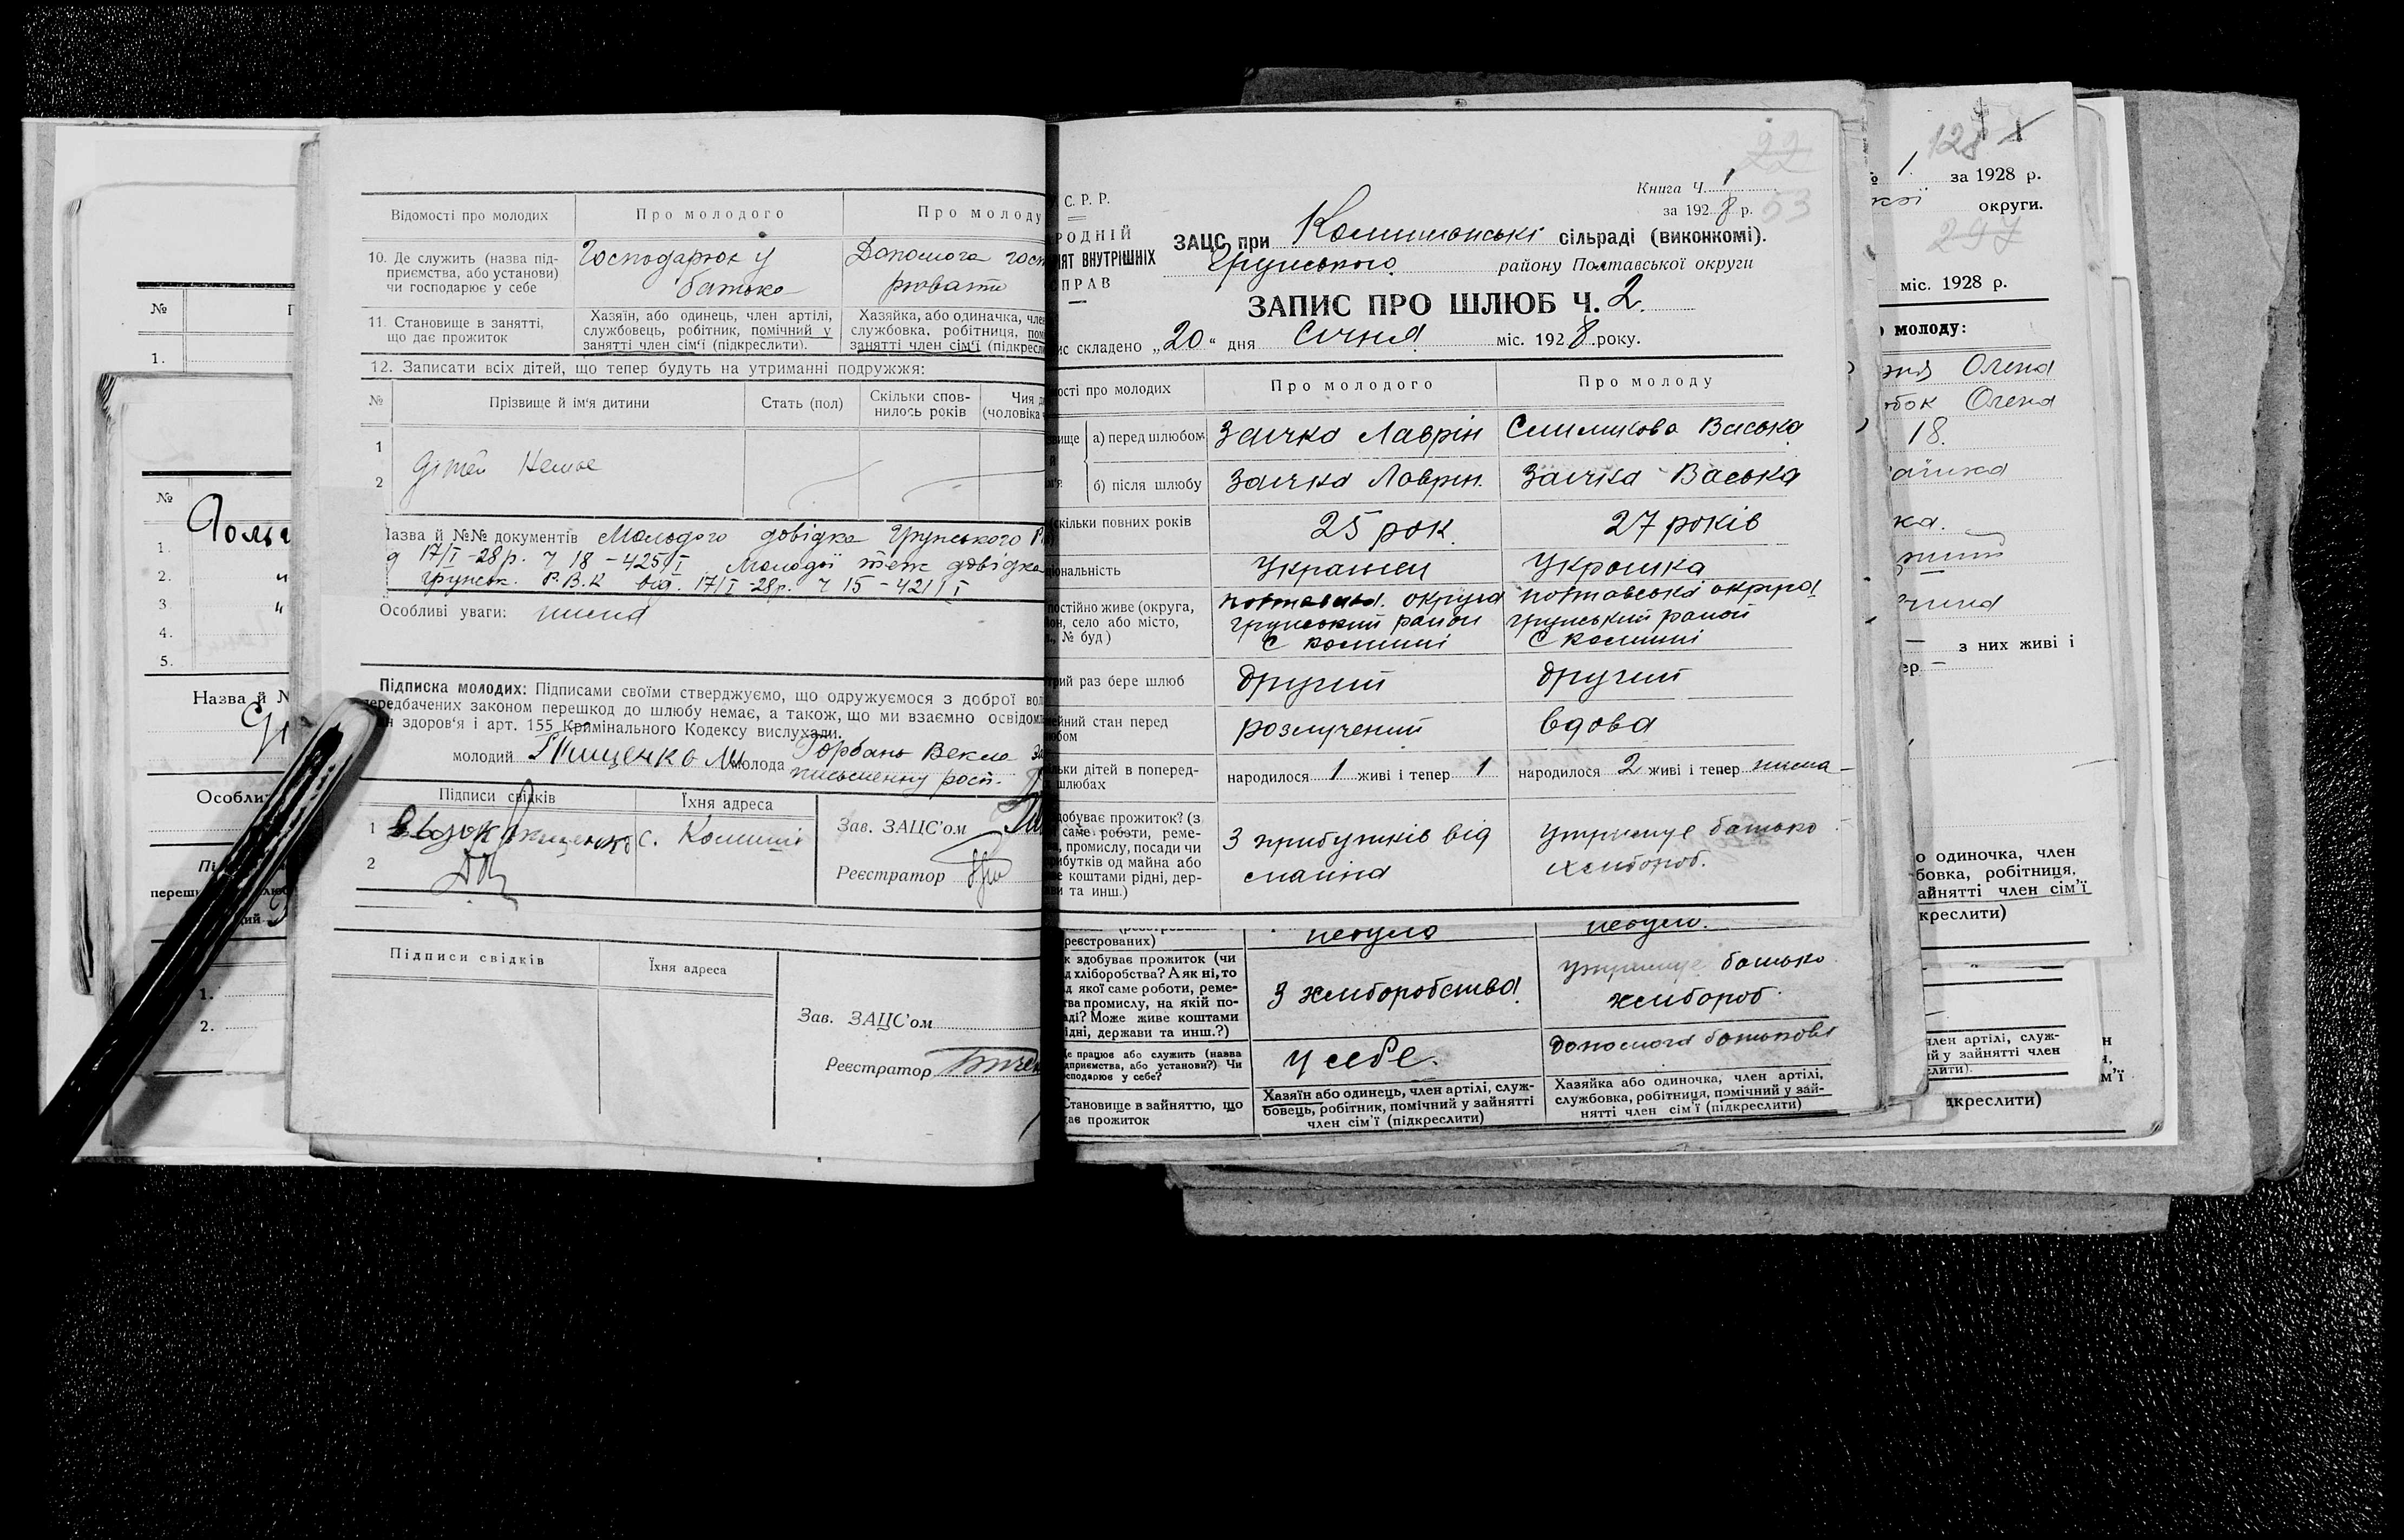 Відомості про молодих
Про молодого
Про молоду
10. Де служить (назва під-
приємства, або установи)
чи господарює у себе
Господарює у
батька
Допомога госп
рювати
11. Становище в занятті,
що дає прожиток
Хазяїн, або одинець, член артілі,
службовець, робітник, помічний у
занятті член сім'ї (підкреслити).
Хазяйка, або одиначка, член
службовка, робітниця, пом
занятті член сім'ї (підкресл
12. Записати всіх дітей, що тепер будуть на утриманні подружжя:
№
Прізвище й ім'я дитини
Стать (пол)
Скільки спов-
нилось років
Чия д
(чоловіка
1
2
дітей немає
Назва й №№ документів Молодого довідка Грунського Р
д 17/I-28р. ч 18-425/I Молодої теж довідка
Грунськ. Р.В.К від. 17/I-28р. ч 15-421/I
Особливі уваги: нима
Підписка молодих: Підписами своїми стверджуємо, що одружуємося з доброї вол
передбачених законом перешкод до шлюбу немає, а також, що ми взаємно освідом
н здоров'я і арт. 155 Кримінального Кодексу вислухали.
молодий
молода Горбань Векла за
письменну росп.
Підписи свідків
Їхня адреса
1
с. Комиші
2
Зав. ЗАЦС'ом
Реєстратор
Підписи свідків
Їхня адреса
Зав. ЗАЦС'ом
Реєстратор
№
1.
№
1.
2. "
3 "
4.
5.
Назва й №
Особли
1.
2.
С. Р. Р.
РОДНІЙ
ІЯТ ВНУТРІШНІХ
СПРАВ
22
53
Книга Ч. 1
за 1928 р.
ЗАЦС при Комишанські сільраді (виконкомі).
Грунського району Полтавської округи
ЗАПИС ПРО ШЛЮБ Ч. 2.
ис складено „20“ дня Січня міс. 1928 року.
мості про молодих
Про молодого
Про молоду
звище
а) перед шлюбом
Заичка Лаврін
Васька
б) після шлюбу
Заичка Лаврін.
Заичка Васька
скільки повних років
25 рок.
27 років
ціональність
Украинец
Украинка
постійно живе (округа,
он, село або місто,
, № буд)
округа
Грунський район
с комиші
Потавська округа
Грунський район
с комиші
трий раз бере шлюб
другий
другий
мейний стан перед
юбом
розлучений
вдова
льки дітей в поперед-
шлюбах
народилося 1 живі і тепер 1
народилося 2 живі і тепер нима
добуває прожиток? (з
саме роботи, реме-
, промислу, посади чи
рибутків од майна або
ве коштами рідні, дер-
ви та инш.)
З прибутків від
маина
утримує батько
хлибороб.
реєстрованих)
небуло
небуло.
к здобуває прожиток (чи
д хліборобства? А як ні, то
д якої саме роботи, реме-
тва промислу, на якій по-
аді? Може живе коштами
ідні, держави та инш.?)
З хлиборобства
утримує батько
хлибороб.
е працює або служить (назва
дприємства, або установи?) Чи
сподарює у себе?
У себе.
Допомога батькові
Становище в зайняттю, що
дає прожиток
Хазяїн або одинець, член артілі, служ-
бовець, робітник, помічний у зайнятті
член сім'ї (підкреслити)
Хазяйка або одиночка, член артілі,
службовка, робітниця, помічний у зай-
нятті член сім'ї (підкреслити)
128
№ 1. за 1928 р.
округи.
297
міс. 1928 р.
о молоду:
Олена
Олена
18.
з них живі і
ер
о одиночка, член
бовка, робітниця,
айнятті член сім'ї
дкреслити)
член артілі, служ-
ий у зайнятті член
слити).
м'ї
дкреслити)